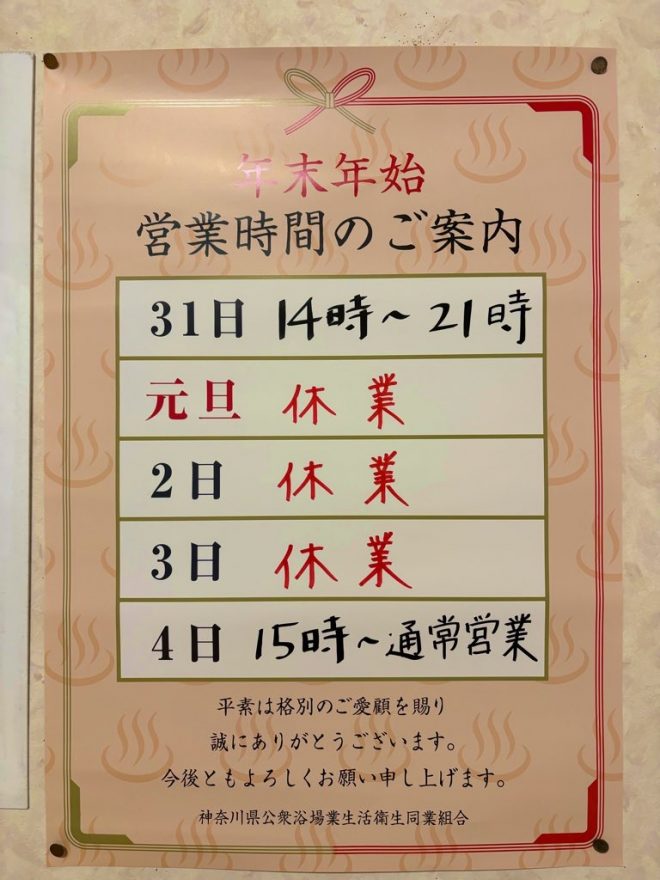 年末年始
営業時間のご案内
31日 14時~21時
元旦 休業
2日 休業
3日 休業
4日 15時~通常営業
平素は格別のご愛顧を賜り
誠にありがとうございます。
今後ともよろしくお願い申し上げます。
神奈川県公衆浴場業生活衛生同業組合